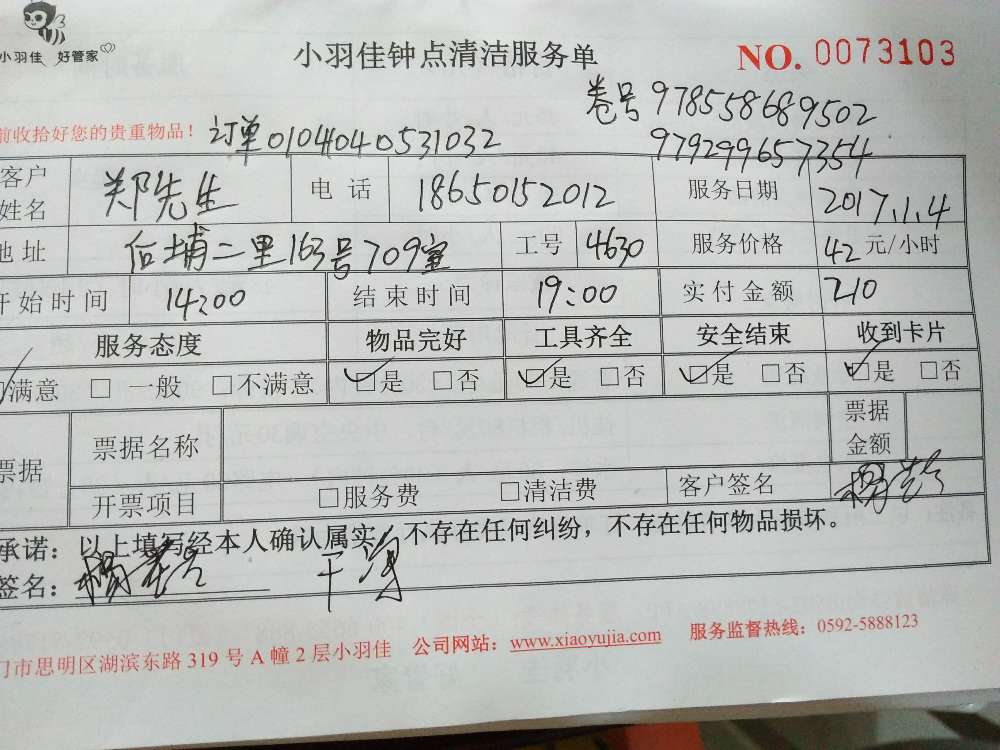 小羽佳 好管家
小羽佳钟点清洁服务单
NO. 0073103
卷号 978558689502
979299657354
前收拾好您的贵重物品！ 订单0104040531032
客户姓名 郑先生 电话 18650152012 服务日期 2017.1.4
地址 后埔二里163号709室 工号 4630 服务价格 42元/小时
开始时间 14:00 结束时间 19:00 实付金额 210
服务态度 物品完好 工具齐全 安全结束 收到卡片
☑满意 □一般 □不满意 ☑是 □否 ☑是 □否 ☑是 □否 ☑是 □否
票据 票据名称 票据金额
开票项目 □服务费 □清洁费 客户签名
承诺：以上填写经本人确认属实，不存在任何纠纷，不存在任何物品损坏。
签名：
门市思明区湖滨东路 319 号 A 幢 2 层小羽佳 公司网站：www.xiaoyujia.com 服务监督热线：0592-5888123